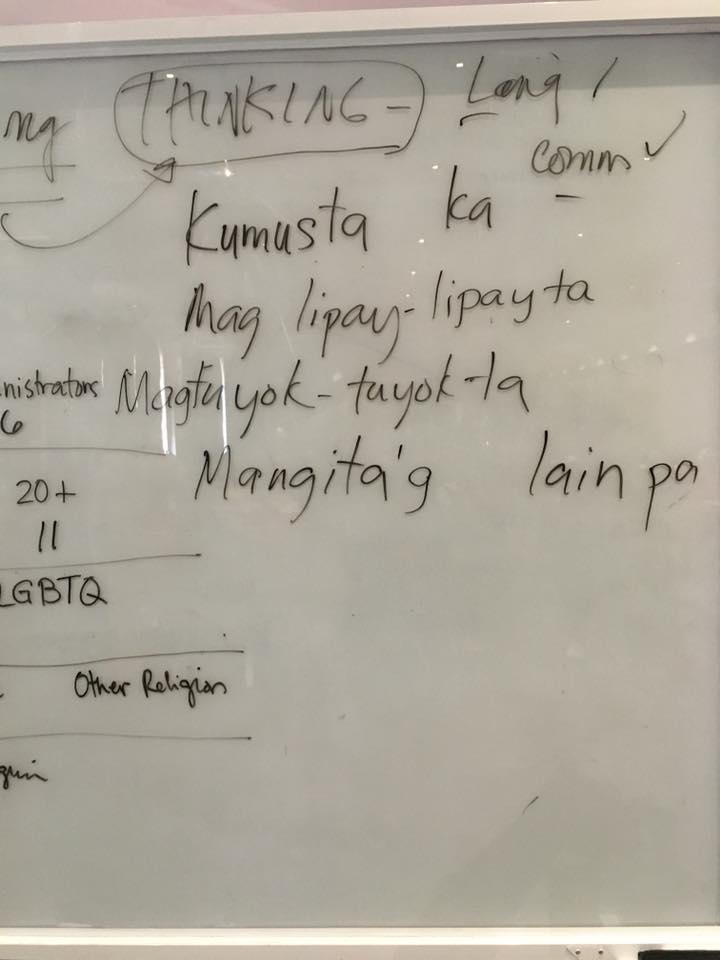 ng THINKING - Lang /
comm ✓
Kumusta ka
Mag lipay-lipay ta
nistrators Magtuyok-tuyok-ta
6
Mangita'g lain pa
20+
11
LGBTQ
Other Religion